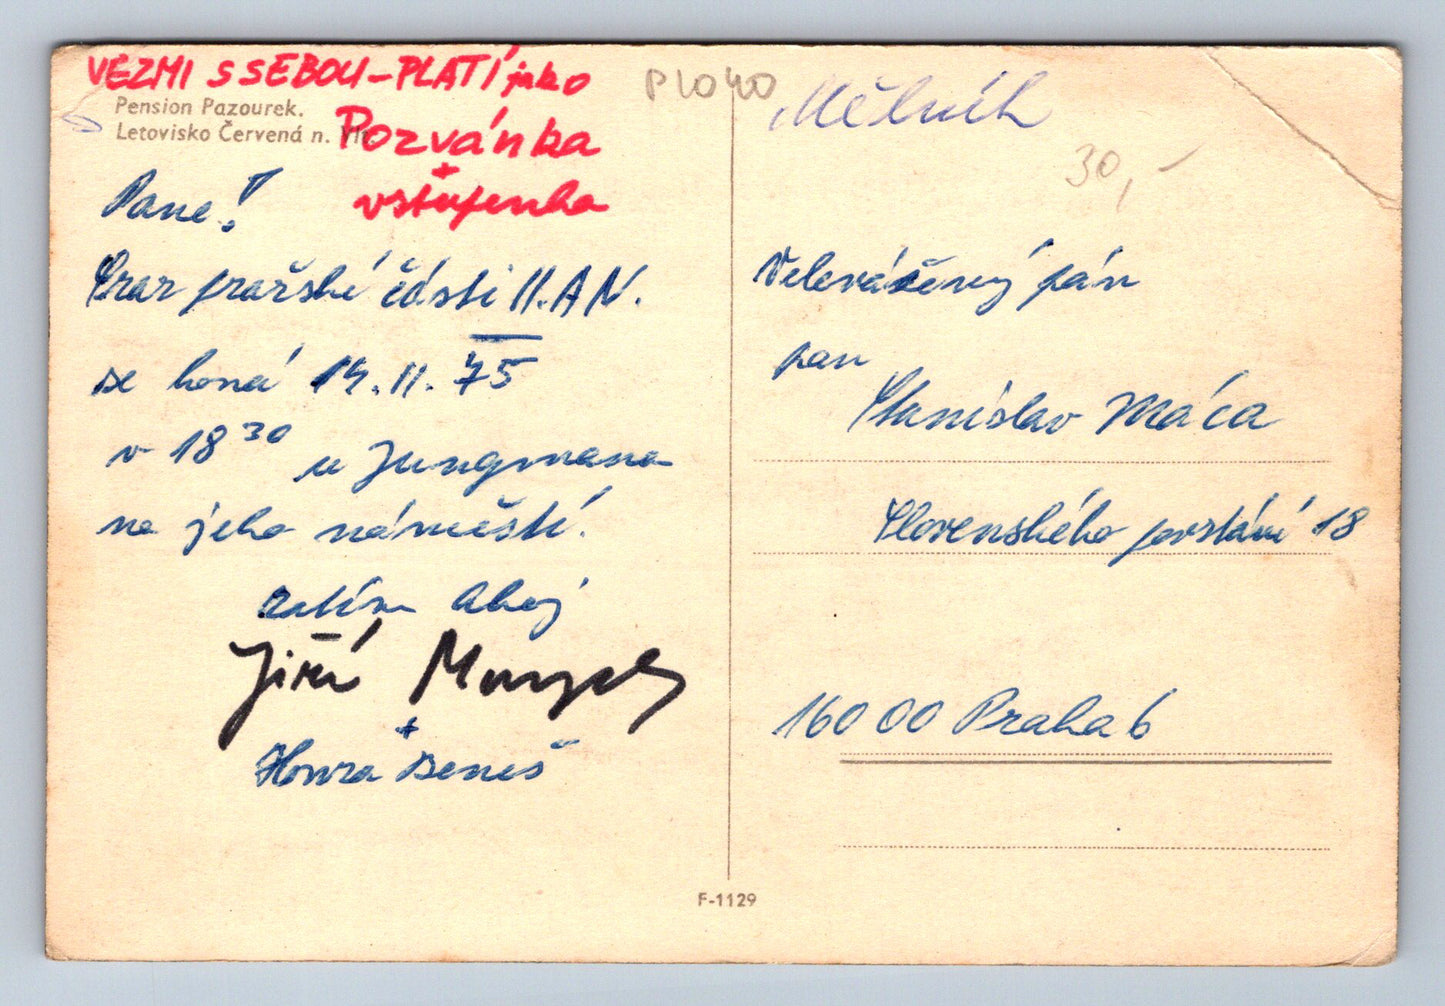 VEZMI S SEBOU - PLATÍ jako
Pension Pazourek.
Letovisko Červená n. Vlt.
Pozvánka
+
vstupenka
Pane!
Sraz pražské části II. A N.
se koná 14. 11. 75
v 18 30 u Jungmana
na jeho náměstí.
zatím Ahoj
Jiří
+
Honza Beneš
P1040
Mělník
30,-
Velevážený pán
pan
Stanislav Máca
Slovenského povstání 18
160 00 Praha 6
F-1129